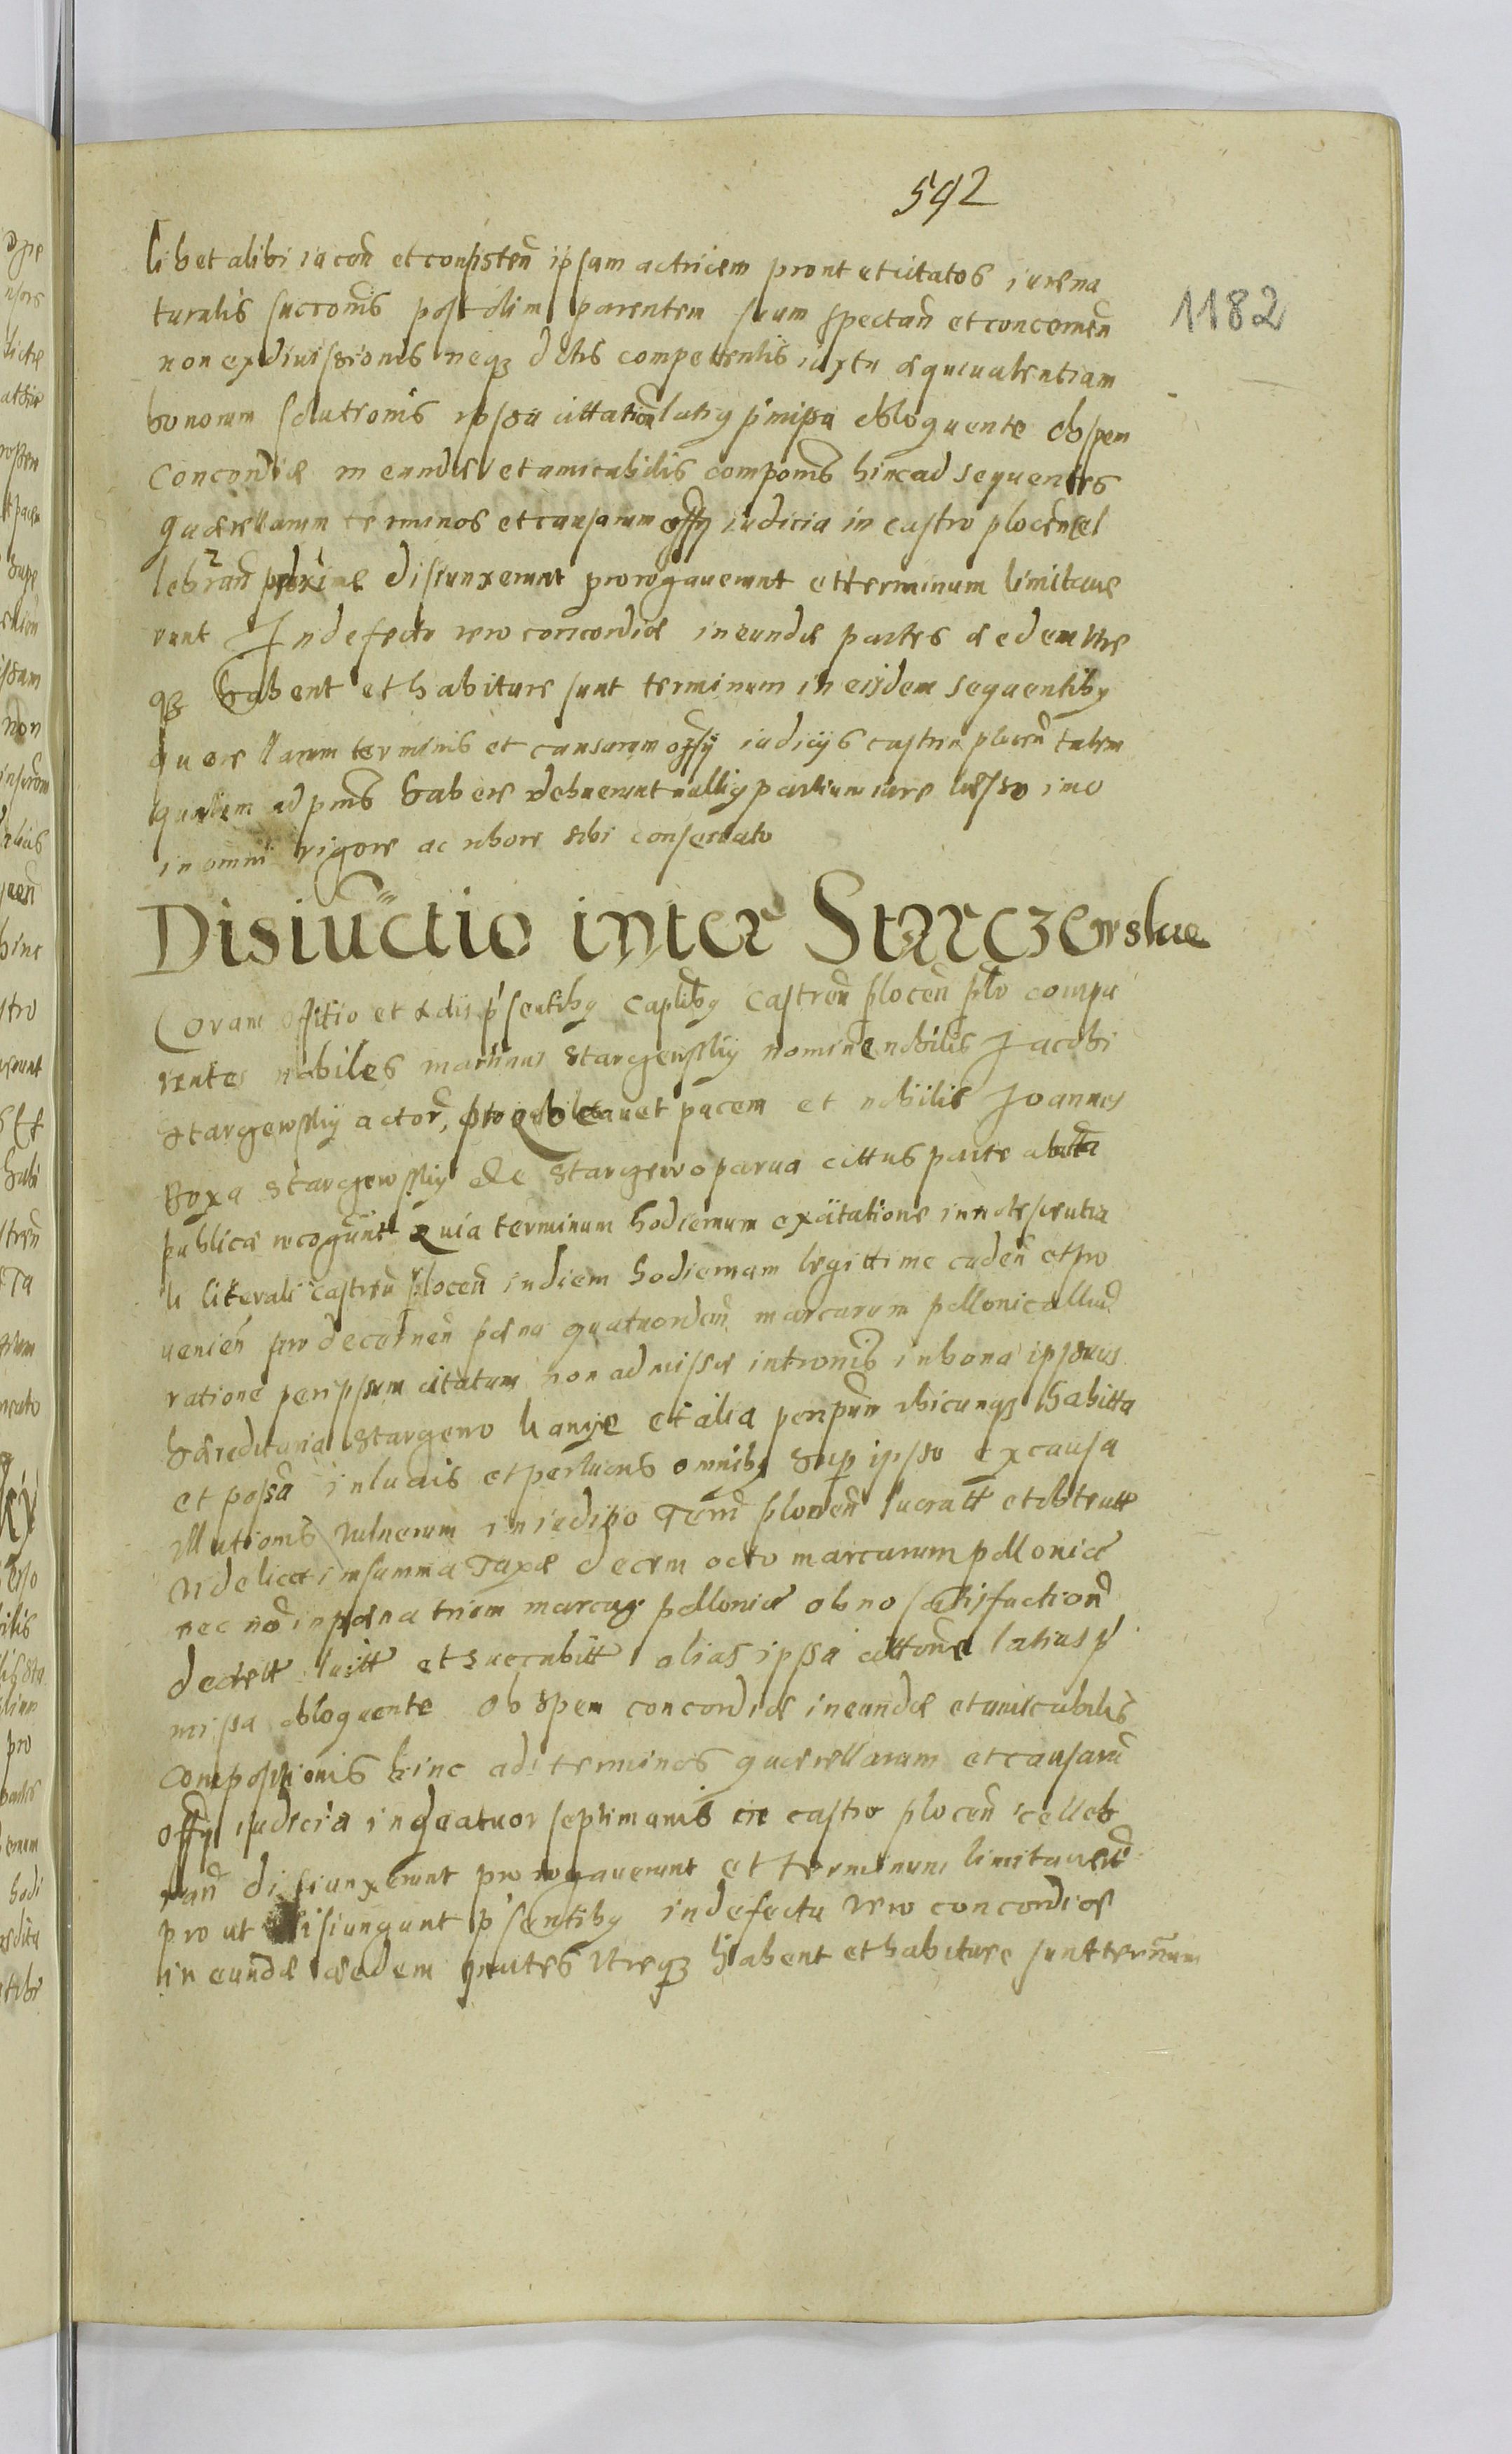 592
1182
libet alibi iacen̄ et consisten̄ ipsam actricem prout et citatos iure na
turalis succomis̄ post olim parentem suum spectan̄ et concernen̄
non ex diuissionis neqȝ dotis competentis iuxta aequiualentiam
bonorum solutionis ipsa cittatione latiꝰ p̄missa obloquente ob spem
Concordiae ineundae et amicabilis componis̄ hinc ad sequentes
quaerellarum terminos et causarum offij iudicia in castro plocen̄ cel
lebran̄ proxime disiunxerunt prorogauerunt et terminum limitaue
runt In defectu vero concordiae ineundae partes aedem vtre
qȝ habent et habiture sunt terminum in eisdem sequentibꝰ
quaerellarum terminis et causarum offij iudicijs castren̄ plocen̄ talem
qualem ad pn̄s habere debuerunt nulliꝰ partium iure laeso imo
in omni rigore ac robore sibi conseruato
Disiūctio inter Starczewskie
Coram offitio et actis p̄sentibꝰ Captlibꝰ Castren̄ plocen̄ plr̄ compa
rentes nobiles martinus Stargewskij nomine nobilis Jacobi
Stargewskij actor̄, pro quo cauet pacem et nobilis Joannes
Boxa Stargewskij de Stargewo parua cittus parte ab altā
publicae recogun̄t Quia terminum hodiernum ex citatione innotescentia
li literali castren̄ plocen̄ in diem hodiernam legittime caden̄ et pro
uenien̄ pro decernen̄ paena quatuordecim̄ marcarum pollonicalliū
ratione per ipsum citatum non admissae intromis̄ in bona ipsius
haereditaria Stargewo kanije et alia per ipsum vbicunqȝ habitta
et possa in lucris et perlucris omnibꝰ sup̄ ipso ex causa
illationis vulnerum in iudicio Terrr̄ plocen̄ lucratt̄ et obtentt̄
videlicet in summa Taxae decem octo marcarum pollonice
nec nō in paena trium marcaꝝ pollonice ob no satisfactionē
decrett̄ luitt̄ et succubitt̄ alias ipsa cittone latius p̄
missa obloquente ob spem concordiae ineundae et amicabilis
compositionis hinc ad terminos quaerellarum et causarū
offij iudicia in quatuor septimanis in castro plocen̄ celleb
ran̄ disiunxerunt prorogauerunt et terminum limitauerūt
prout disiungunt p̄sentibꝰ in defectu vero concordiae
ineundae aedem partes vtreqȝ habent et habiture sunt term̄num